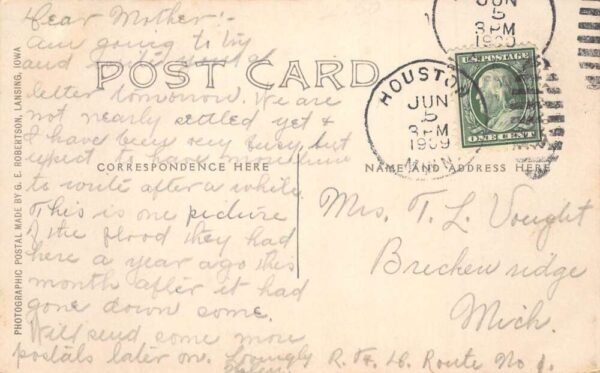 Dear Mother:-
Am going to try
and
POST CARD
letter tomorrow. We are
not nearly settled yet &
I have been very busy but
expect to have more time
CORRESPONDENCE HERE
to write after a while.
This is one picture
of the flood they had
here a year ago this
month after it had
gone down some.
Will send some more
postals later on. Lovingly
PHOTOGRAPHIC POSTAL MADE BY G. E. ROBERTSON, LANSING, IOWA
JUN
5
3 PM
1909
HOUSTON
JUN
5
3 PM
1909
MINN.
U.S. POSTAGE
ONE CENT
NAME AND ADDRESS HERE
Mrs. T. L. Vought
Breckenridge
Mich.
Route No 1.